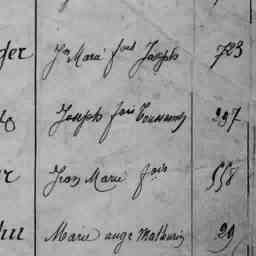 der Jn Marie fois Joseph 723
Joseph fois Toussaint 237
er Jean Marie fois 558
Marie ange Mathurin 29